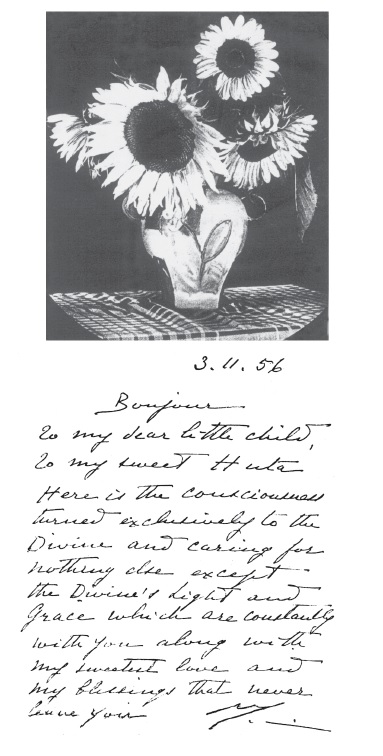 3.11.56
Bonjour
To my dear little child,
To my sweet Huta
Here is the consciousness
turned exclusively to the
Divine and caring for
nothing else except
the Divine's Light and
Grace which are constantly
with you along with
my sweetest love and
my blessings that never
leave you